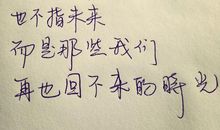 也不指未来
而是那些我们
再也回不来的時光